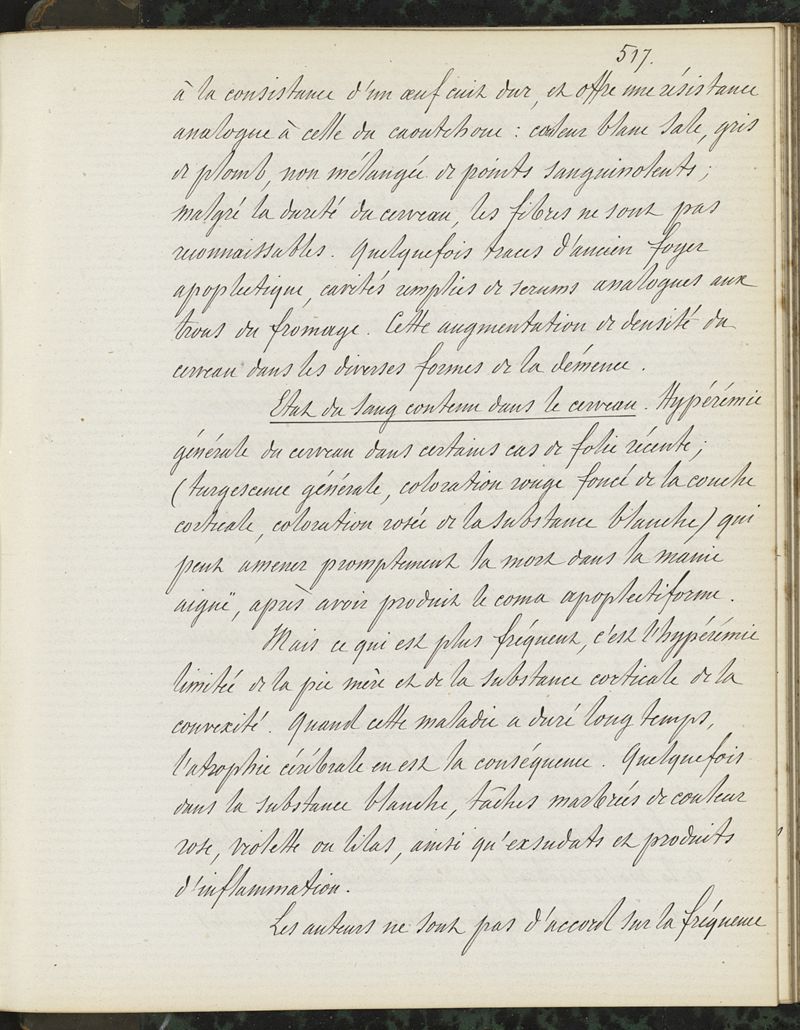 517.
à la consistance d'un œuf cuit dur, et offre une résistance
analogue à celle du caoutchouc : couleur blanc sale, gris
de plomb, non mélangée de points sanguinolents ;
malgré la dureté du cerveau, les fibres ne sont pas
reconnaissables. Quelquefois traces d'ancien foyer
apoplectique, cavités remplies de serums analogues aux
trous du fromage. Cette augmentation de densité du
cerveau dans les diverses formes de la démence.
Etat du sang contenu dans le cerveau. Hypérémie
générale du cerveau dans certains cas de folie récente ;
(turgescence générale, coloration rouge foncé de la couche
corticale, coloration rosée de la substance blanche) qui
peut amener promptement la mort dans la manie
aiguë, après avoir produit le coma apoplectiforme.
Mais ce qui est plus fréquent, c'est l'hypérémie
limitée de la pie mère et de la substance corticale de la
convexité. Quand cette maladie a duré longtemps,
l'atrophie cérébrale en est la conséquence. Quelquefois
dans la substance blanche, tâches marbrées de couleur
rose, violette ou lilas, ainsi qu'exsudats et produits
d'inflammation.
Les auteurs ne sont pas d'accord sur la fréquence